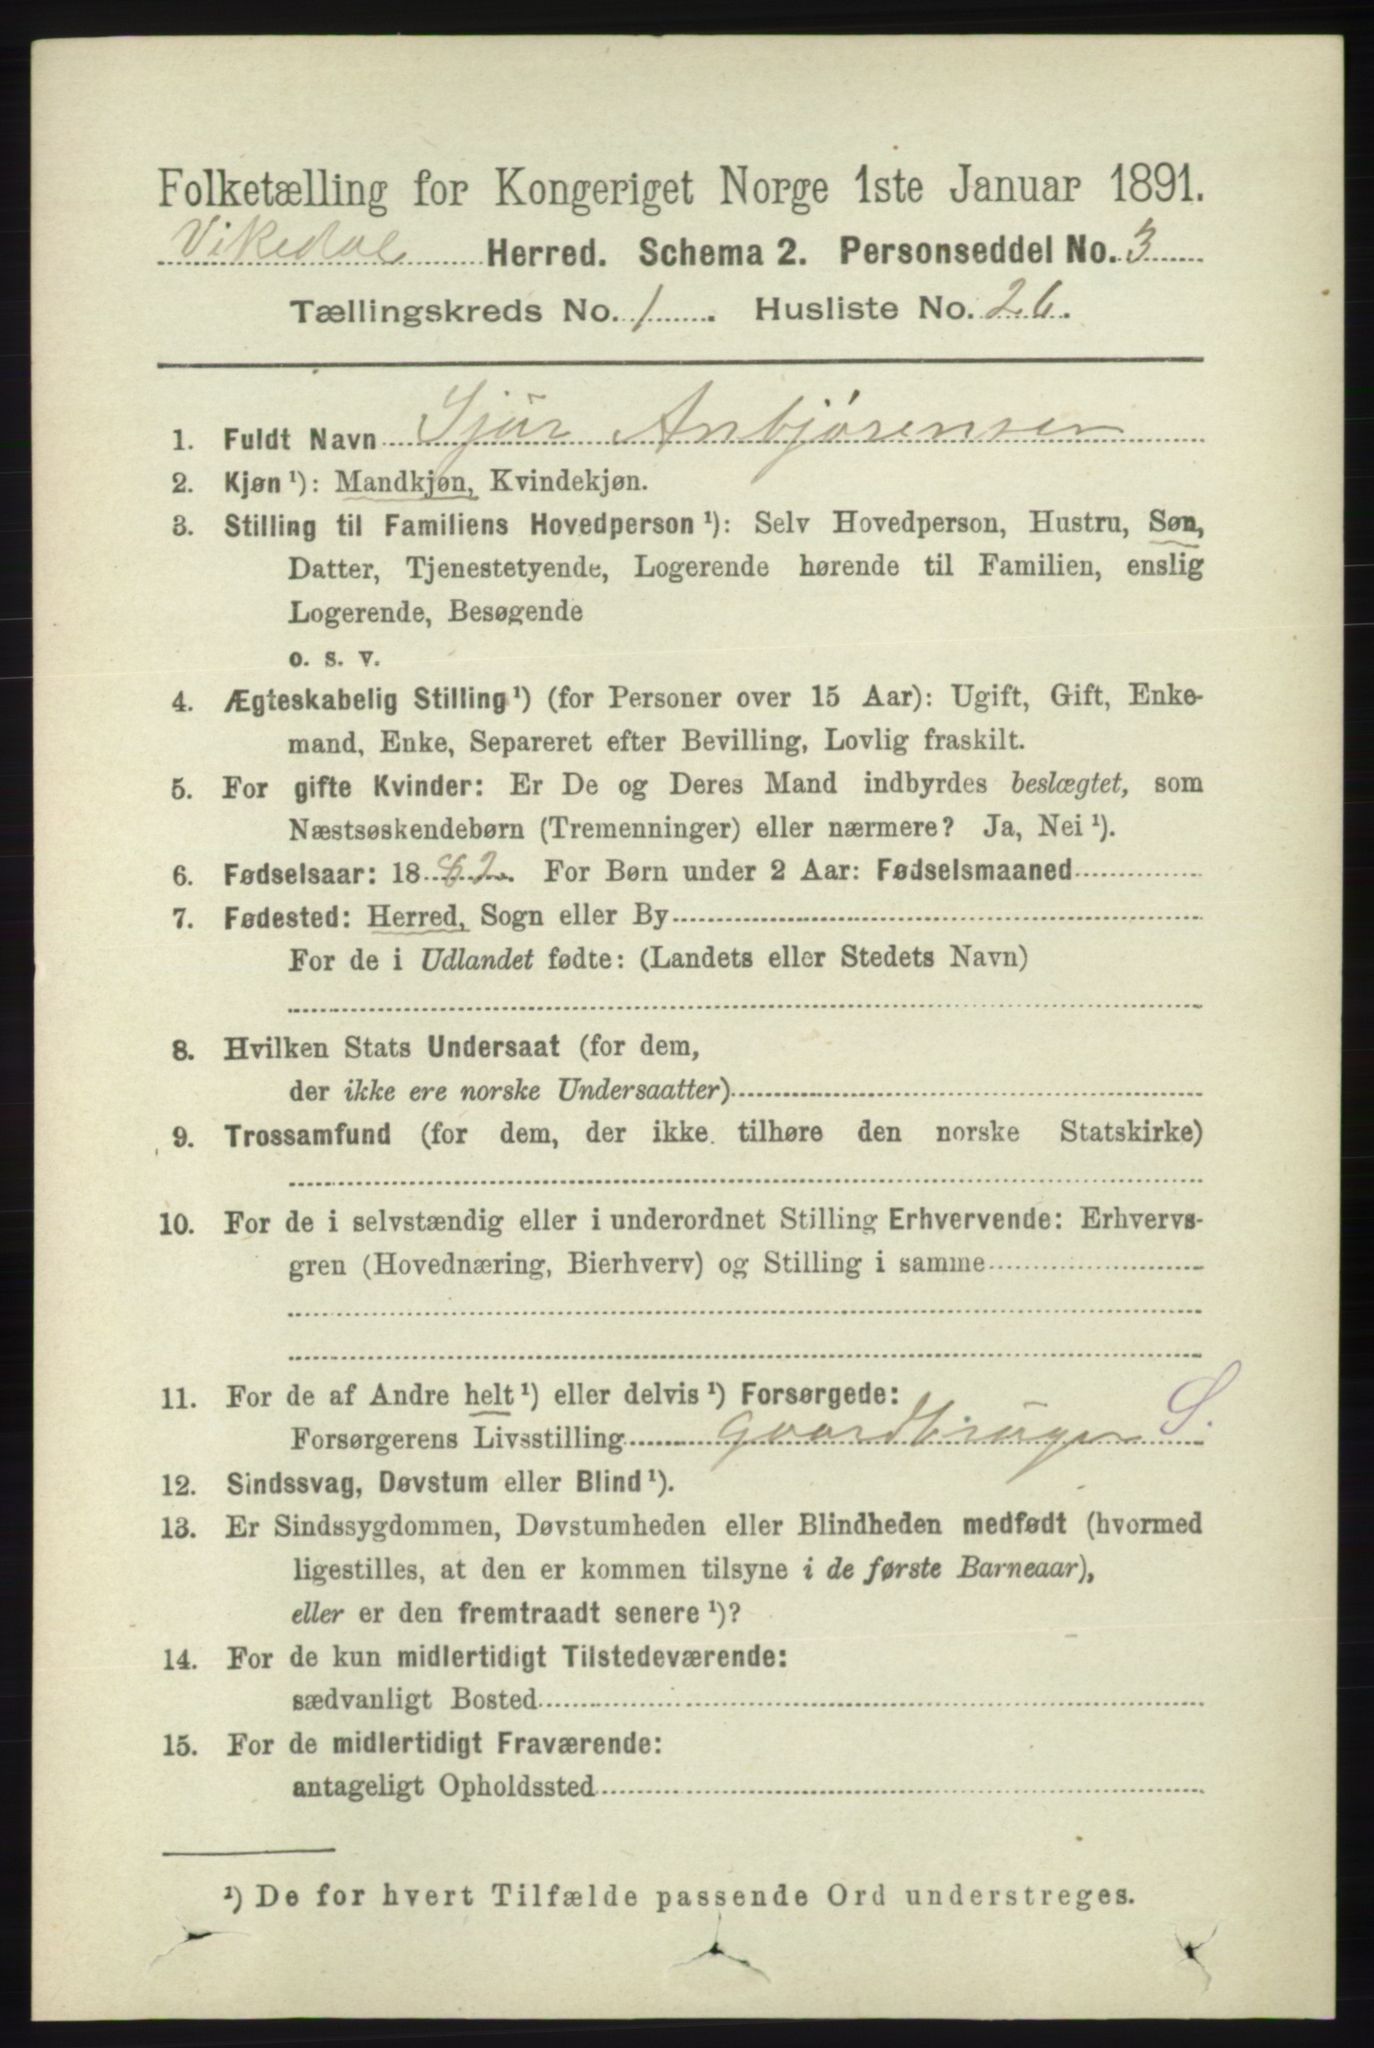 Folketælling for Kongeriget Norge 1ste Januar 1891.
Vikedal Herred. Schema 2. Personseddel No. 3
Tællingskreds No. 1. Husliste No. 26.
1. Fuldt Navn Sjur Anbjørensen
2. Kjøn ¹): Mandkjøn, Kvindekjøn.
3. Stilling til Familiens Hovedperson ¹): Selv Hovedperson, Hustru, Søn,
Datter, Tjenestetyende, Logerende hørende til Familien, enslig
Logerende, Besøgende
o. s. v.
4. Ægteskabelig Stilling ¹) (for Personer over 15 Aar): Ugift, Gift, Enke-
mand, Enke, Separeret efter Bevilling, Lovlig fraskilt.
5. For gifte Kvinder: Er De og Deres Mand indbyrdes beslægtet, som
Næstsøskendebørn (Tremenninger) eller nærmere? Ja, Nei ¹).
6. Fødselsaar: 1882. For Børn under 2 Aar: Fødselsmaaned
7. Fødested: Herred, Sogn eller By
For de i Udlandet fødte: (Landets eller Stedets Navn)
8. Hvilken Stats Undersaat (for dem,
der ikke ere norske Undersaatter)
9. Trossamfund (for dem, der ikke tilhøre den norske Statskirke)
10. For de i selvstændig eller i underordnet Stilling Erhvervende: Erhvervs-
gren (Hovednæring, Bierhverv) og Stilling i samme
11. For de af Andre helt ¹) eller delvis ¹) Forsørgede:
Forsørgerens Livsstilling Gaardbruger S.
12. Sindssvag, Døvstum eller Blind ¹).
13. Er Sindssygdommen, Døvstumheden eller Blindheden medfødt (hvormed
ligestilles, at den er kommen tilsyne i de første Barneaar),
eller er den fremtraadt senere ¹)?
14. For de kun midlertidigt Tilstedeværende:
sædvanligt Bosted
15. For de midlertidigt Fraværende:
antageligt Opholdssted
¹) De for hvert Tilfælde passende Ord understreges.